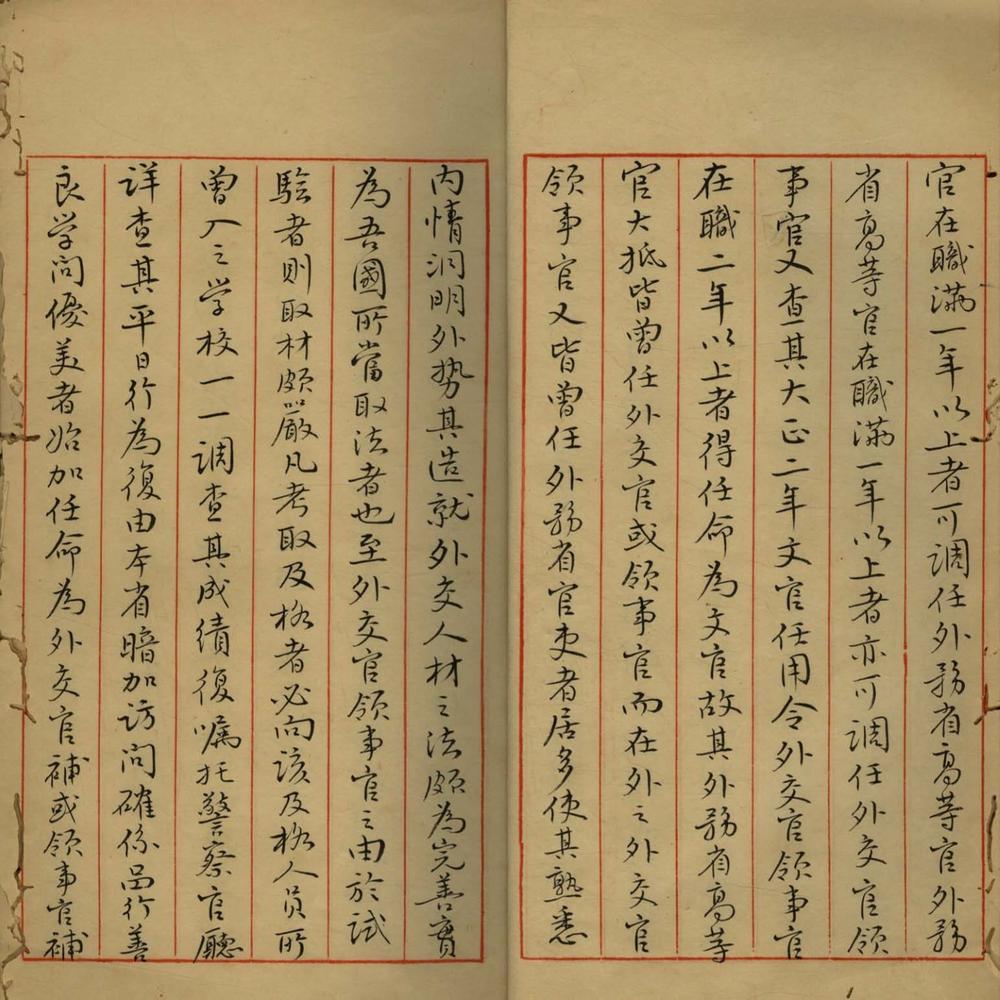 官在職滿一年以上者可調任外務省高等官外務
省高等官在職滿一年以上者亦可調任外交官領
事官又查其大正二年文官任用令外交官領事官
在職二年以上者得任命為文官故其外務省高等
官大抵皆曾任外交官或領事官而在外之外交官
領事官又皆曾任外務省官吏者居多使其熟悉
内情洞明外势其造就外交人材之法頗為完善實
為吾國所當取法者也至外交官領事官之由於試
驗者則取材頗嚴凡考取及格者必向該及格人員所
曾入之学校一一調查其成績復嘱托警察官廳
詳查其平日行為復由本省暗加訪問確係品行善
良学問優美者始加任命為外交官補或領事官補